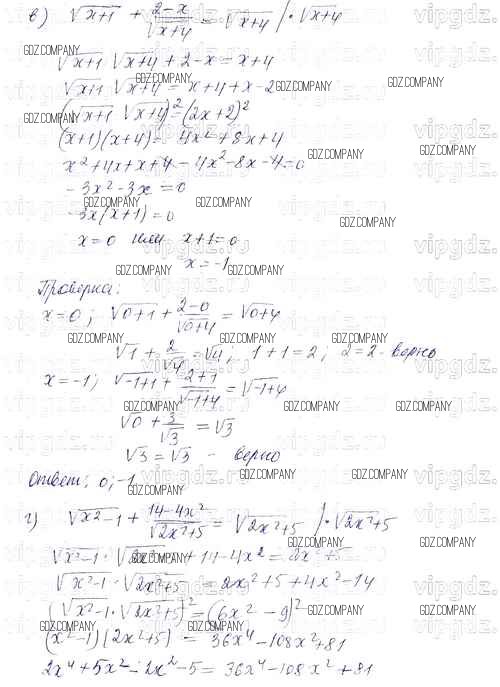 в) √x+1 + 2-x/√x+4 = √x+4 / · √x+4
√x+1 √x+4 + 2-x = x+4
√x+1 √x+4 = x+4+x-2
(√x+1 √x+4)² = (2x+2)²
(x+1)(x+4) = 4x² + 8x + 4
x² + 4x + x + 4 - 4x² - 8x - 4 = 0
-3x² - 3x = 0
-3x(x+1) = 0
x = 0 или x+1 = 0
x = -1
Проверка:
x = 0; √0+1 + 2-0/√0+4 = √0+4
√1 + 2/√4 = √4; 1+1 = 2; 2 = 2 - верно
x = -1; √-1+1 + 2+1/√-1+4 = √-1+4
√0 + 3/√3 = √3
√3 = √3 - верно
Ответ: 0; -1
г) √x²-1 + 14-4x²/√2x²+5 = √2x²+5 / · √2x²+5
√x²-1 · √2x²+5 + 14-4x² = 2x²+5
√x²-1 · √2x²+5 = 2x²+5+4x²-14
(√x²-1 · √2x²+5)² = (6x²-9)²
(x²-1)(2x²+5) = 36x⁴-108x²+81
2x⁴+5x²-2x²-5 = 36x⁴-108x²+81